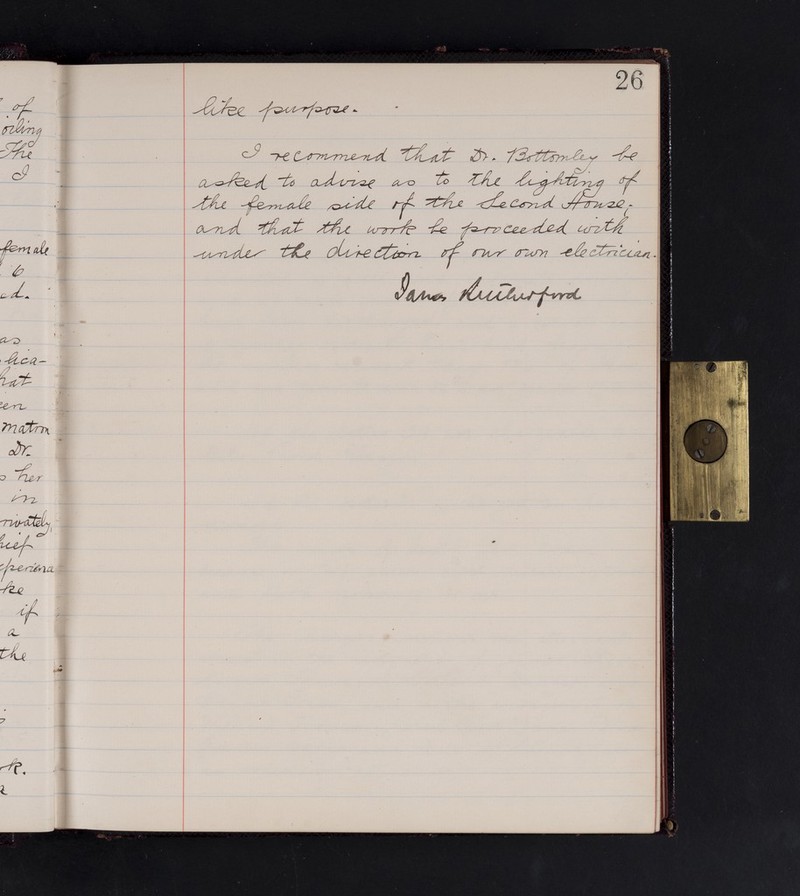 of
oiling
The
I
female
6
ed.
as
lica-
hat
een
matron
Dr.
s her
in
rivately,
hief
xperience
ke
if
a
the
rk.
26
like purpose.
I recommend that Dr. Bottomley be
asked to advise as to the lighting of
the female side of the Second House,
and that the work be proceeded with
under the direction of our own electrician.
James Rutherford